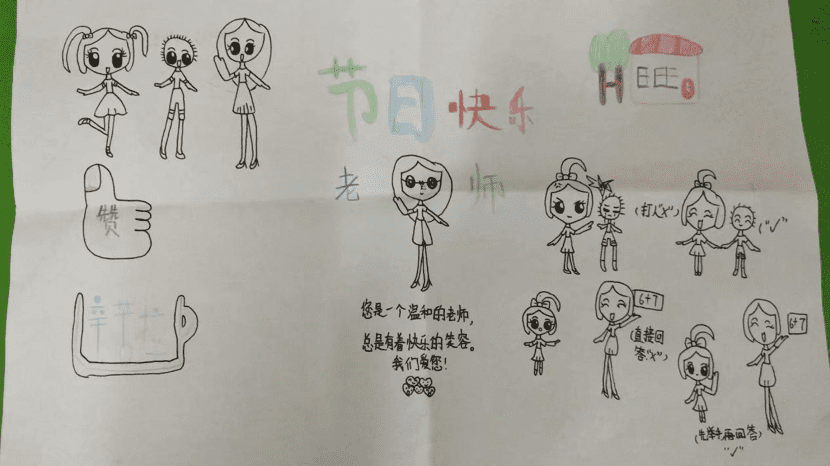 节日快乐
老师
赞
辛苦
您是一个温和的老师,
总是有着快乐的笑容。
我们爱您!
(打人"×")
("√")
6+7
(直接回
答"×")
6+7
(先举手再回答)
"√"